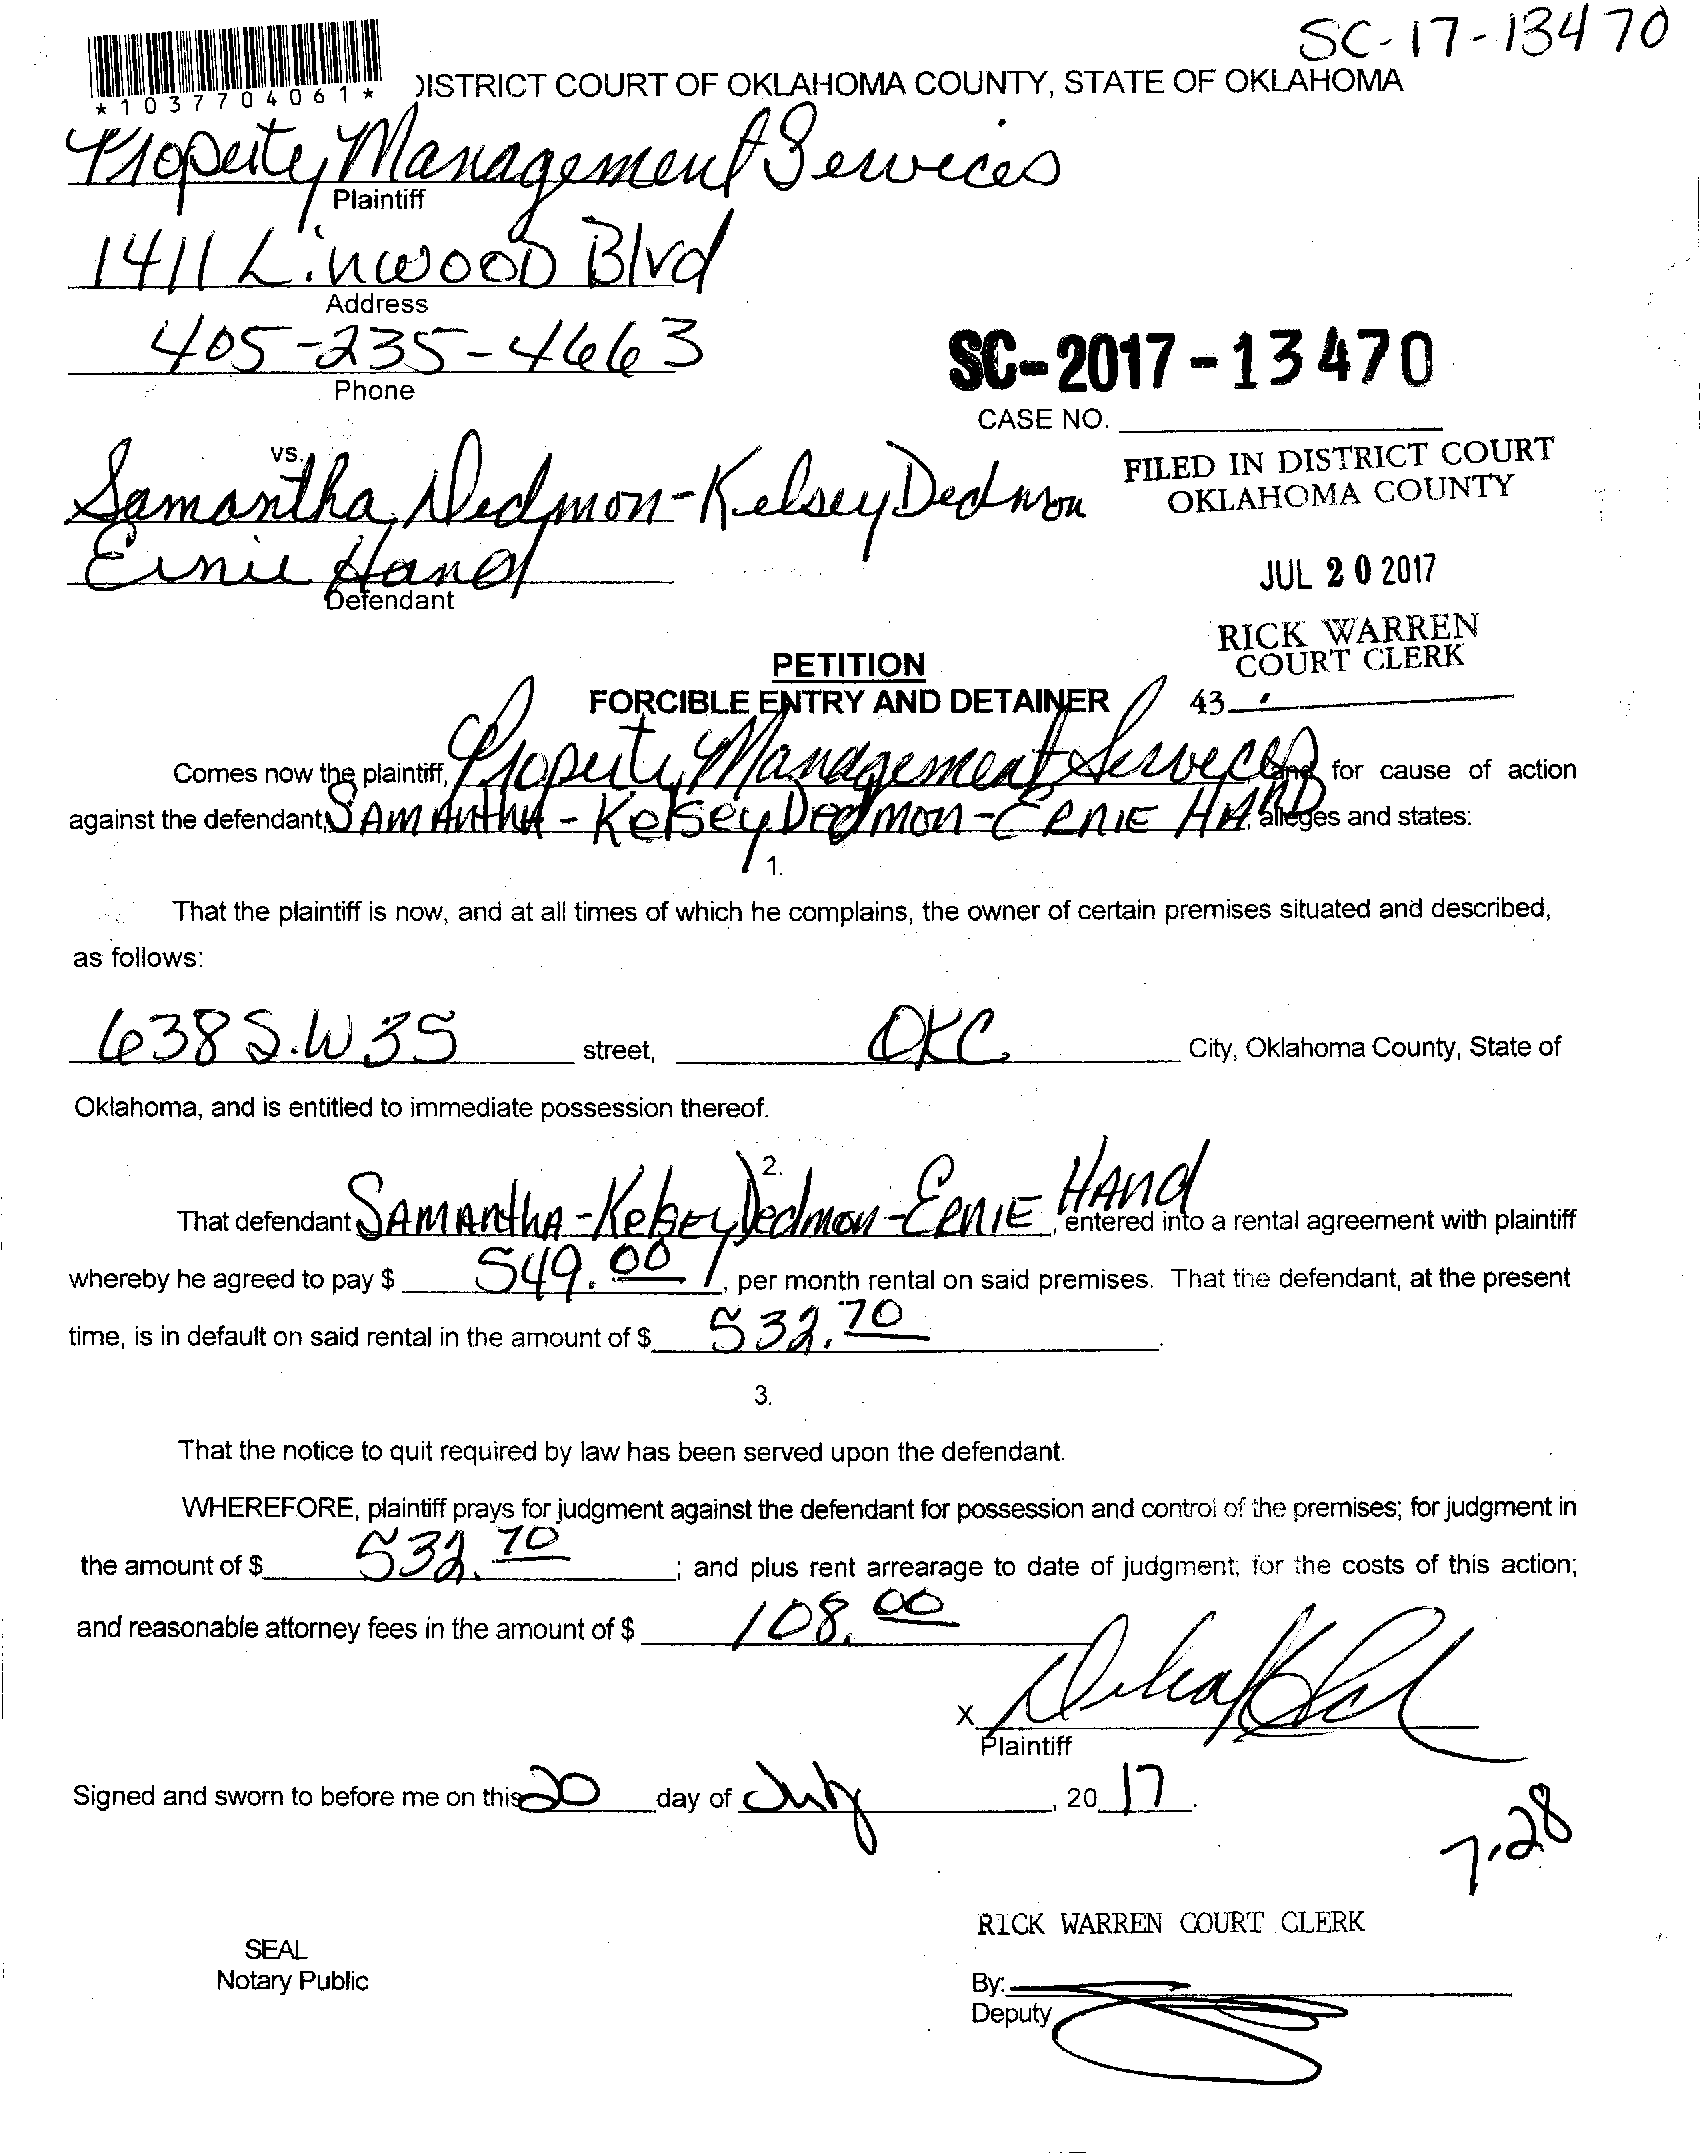 SC-17-13470
*1037704061*
DISTRICT COURT OF OKLAHOMA COUNTY, STATE OF OKLAHOMA
Property Management Services
Plaintiff
1411 Linwood Blvd
Address
405-235-4663
Phone
SC-2017-13470
CASE NO.
vs.
Samantha Dedmon-Kelsey Dedmon
Ernie Hand
Defendant
FILED IN DISTRICT COURT
OKLAHOMA COUNTY
JUL 20 2017
RICK WARREN
COURT CLERK
43
PETITION
FORCIBLE ENTRY AND DETAINER
Comes now the plaintiff, Property Management Services and for cause of action
against the defendant, SAMANthA - Kelsey Dedmon - ERNIE HAND, alleges and states:
1.
That the plaintiff is now, and at all times of which he complains, the owner of certain premises situated and described,
as follows:
638 S.W 35 street, OKC City, Oklahoma County, State of
Oklahoma, and is entitled to immediate possession thereof.
2.
That defendant SAMANthA - Kelsey Dedmon - ERNIE HANd, entered into a rental agreement with plaintiff
whereby he agreed to pay $ 549.00, per month rental on said premises. That the defendant, at the present
time, is in default on said rental in the amount of $ 532.70.
3.
That the notice to quit required by law has been served upon the defendant.
WHEREFORE, plaintiff prays for judgment against the defendant for possession and control of the premises; for judgment in
the amount of $ 532.70; and plus rent arrearage to date of judgment, for the costs of this action;
and reasonable attorney fees in the amount of $ 108.00
X
Plaintiff
Signed and sworn to before me on this 20 day of July, 2017.
7-28
RICK WARREN COURT CLERK
SEAL
Notary Public
By:
Deputy